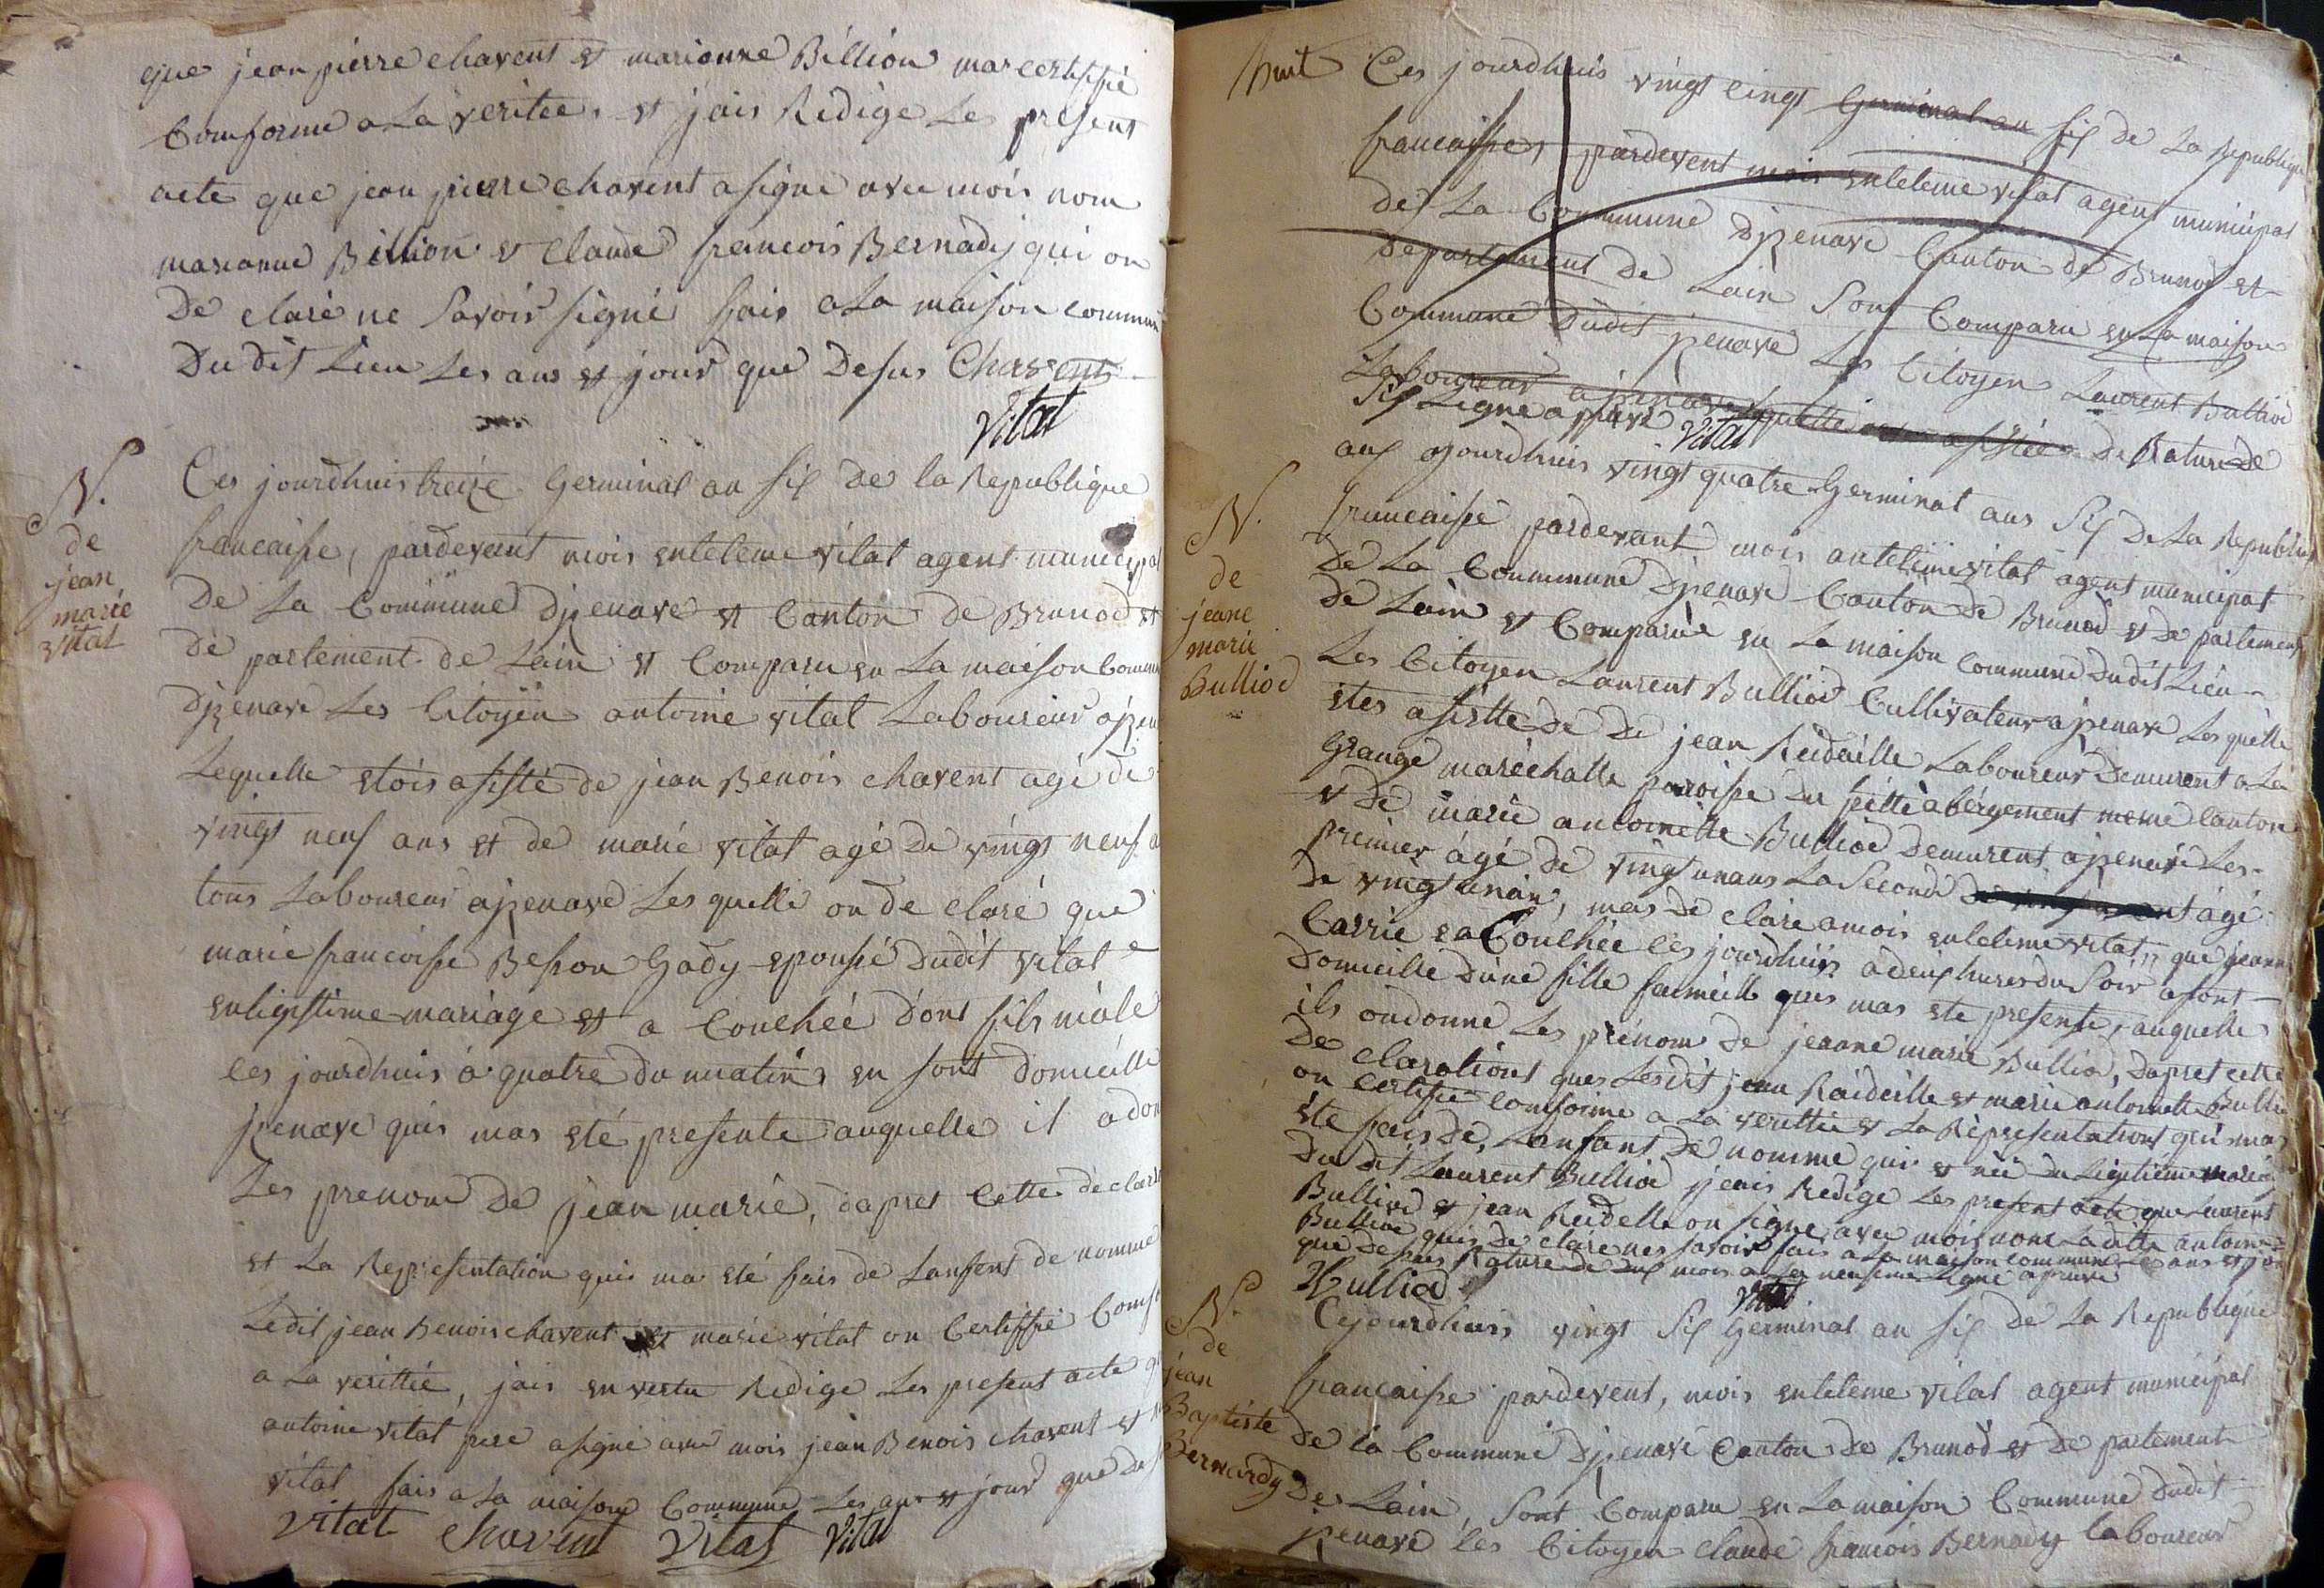 que jean pierre chavent et marianne Billion mar certiffié
Comforme a La veritee, et jais Redige Les present
acte que jean pierre chavent a signe avec mois nom
marianne Billion et Claude francois Bernady qui on
De claré ne Savoir signé fais a La maison commun
Du dit Lieu Les ans et jour que Desus Chavent
Vital
N.
de
jean
marie
vital
Ces jourdhuis treize Germinal an six de la Republique
francaisse, pardevent mois entelme vital agent municipal
De La Commune Dizenave et Canton de Brunod et
de partement de Lain et Comparu en La maison Commun
Dizenave Les Citoyen antoine vital Laboureur a
Lequelle etois assisté de jean Benois chavent agé de
vingt neuf ans et de marie vital agé de vingt neuf a
tous Laboureur a jzenave Les quelle on de claré que
marie francoisse Besson Gady epousse dudit vital
enligistime mariage et a Couchée dont fils mâle
ces jourdhuis a quatre du matin en sont domicille
jzenave quis mas eté presente auquelle il a don
Les prenom De jean marie, dapret cette declar
et La Representation quis ma eté fais de Lanfent de nomme
Ledit jean Benois chavent et marie vital on Certiffié Comf
a La verittié, jais en vertu Redige Les present acte q
antoine vital pere a signé avec mois jean Benois chavent et
vital fais a La maison Commune Les ans et jour que des
vital chavent vital vital
huit Ces jourdhuis vingt cinq Germinal an six de La Republique
francaisse, pardevent mois entelme vital agent municipal
de La Commune Dizenave Canton de Brunod et
departement de Lain Sont Comparu en La maison
Commune Dudit jzenave Les Citoyen Laurent Bulliod
Laboureur a jzenave Lequelle assistée De Rature de
six Ligne apruvé vital
aux ojourdhuis vingt quatre Germinal ans Six De La Republiq
N.
de
jeane
marie
Bulliod
francaisse pardevant mois antelme vital agent municipal
De La Commune Dizenave Canton De Brunod et de partement
de Lain et Comparue en La maison Commune Dudit Lieu
Les Citoyen Laurent Bulliod Cultivateur a jzenave Lesquelle
etes assistte de De jean Reidaille Laboureur Demeurent a La
Grange maréchalle paroisse du pettit abérgement meme Canton
et de marie antoinette Bulliod demeurent a jzenave Les
premier âgé de vingt un ans La Seconde agé
de vingt un an, mas de clare a mois entelme vital, que jeanne
Carrie ea Couchée ces jourdhuis a deux heures du Soir a sont
Domicille Dune fille fameille ques mas ete presente, auquelle
ils on donne Les prénom de jeanne marie Bulliod, Dapret cette
De clarations ques Lesdit jean Raideille et marie antoinette Bullio
on certifié comforme a La verittié et La Représentations qui mas
éte fais de, Lanfant De nomme qui et née Du Legitieme mariag
Du dit Laurent Bulliod jeais Redige Les present acte que Laurent
Bulliod et jean Reidelle on signe avec mois nom Ladite antoine
Bulliod quis de clare nes savoir fais a La maison commune Les ans et jour
que Desus Rature de deux mois a La neufieme Ligne apruvé
Bulliod vital
N.
de
jean
Baptiste
Bernardy
Cejourdhuis vingt Six Germinal an six de La Republique
francaisse pardevent, mois entelme vital agent municipal
De la Commune Dizenave Canton de Brunod et De partement
De Lain, Sont Comparu en La maison Commune dudit
jzenave les Citoyen Claude francois Bernady laboureur